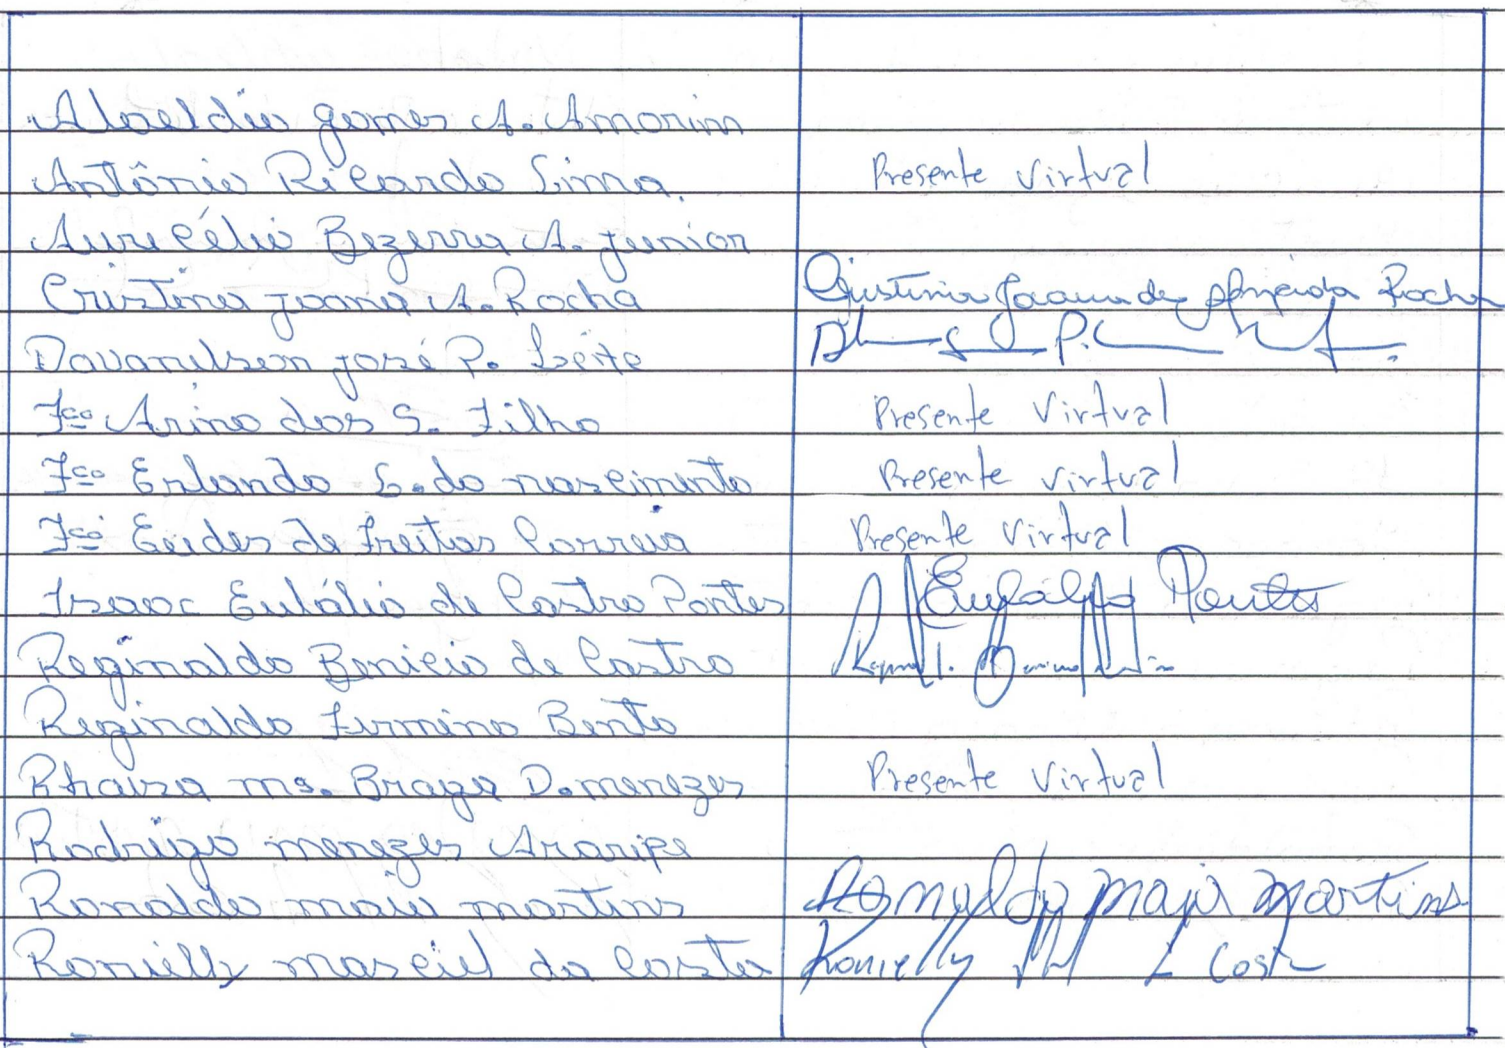 Gomes A. Amorim
Antônio Ricardo Lima Presente Virtual
Auricélio Bezerra A. Junior
Cristina Joana A. Rocha Cristina Joana de Almeida Rocha
José P. Leite
Fco Arino dos S. Filho Presente Virtual
Fco Erlando S. do nascimento Presente Virtual
Fco Eudes de Freitas Correia Presente Virtual
Isaac Eulálio de Castro Pontes Eulálio Pontes
Reginaldo Benicio de Castro
Reginaldo Firmino Bento
ma. Braga D. menezes Presente Virtual
Rodrigo menezes Araripe
Ronaldo maia martins Ronaldo maia martins
Ronielly maciel da Costa Ronielly Costa